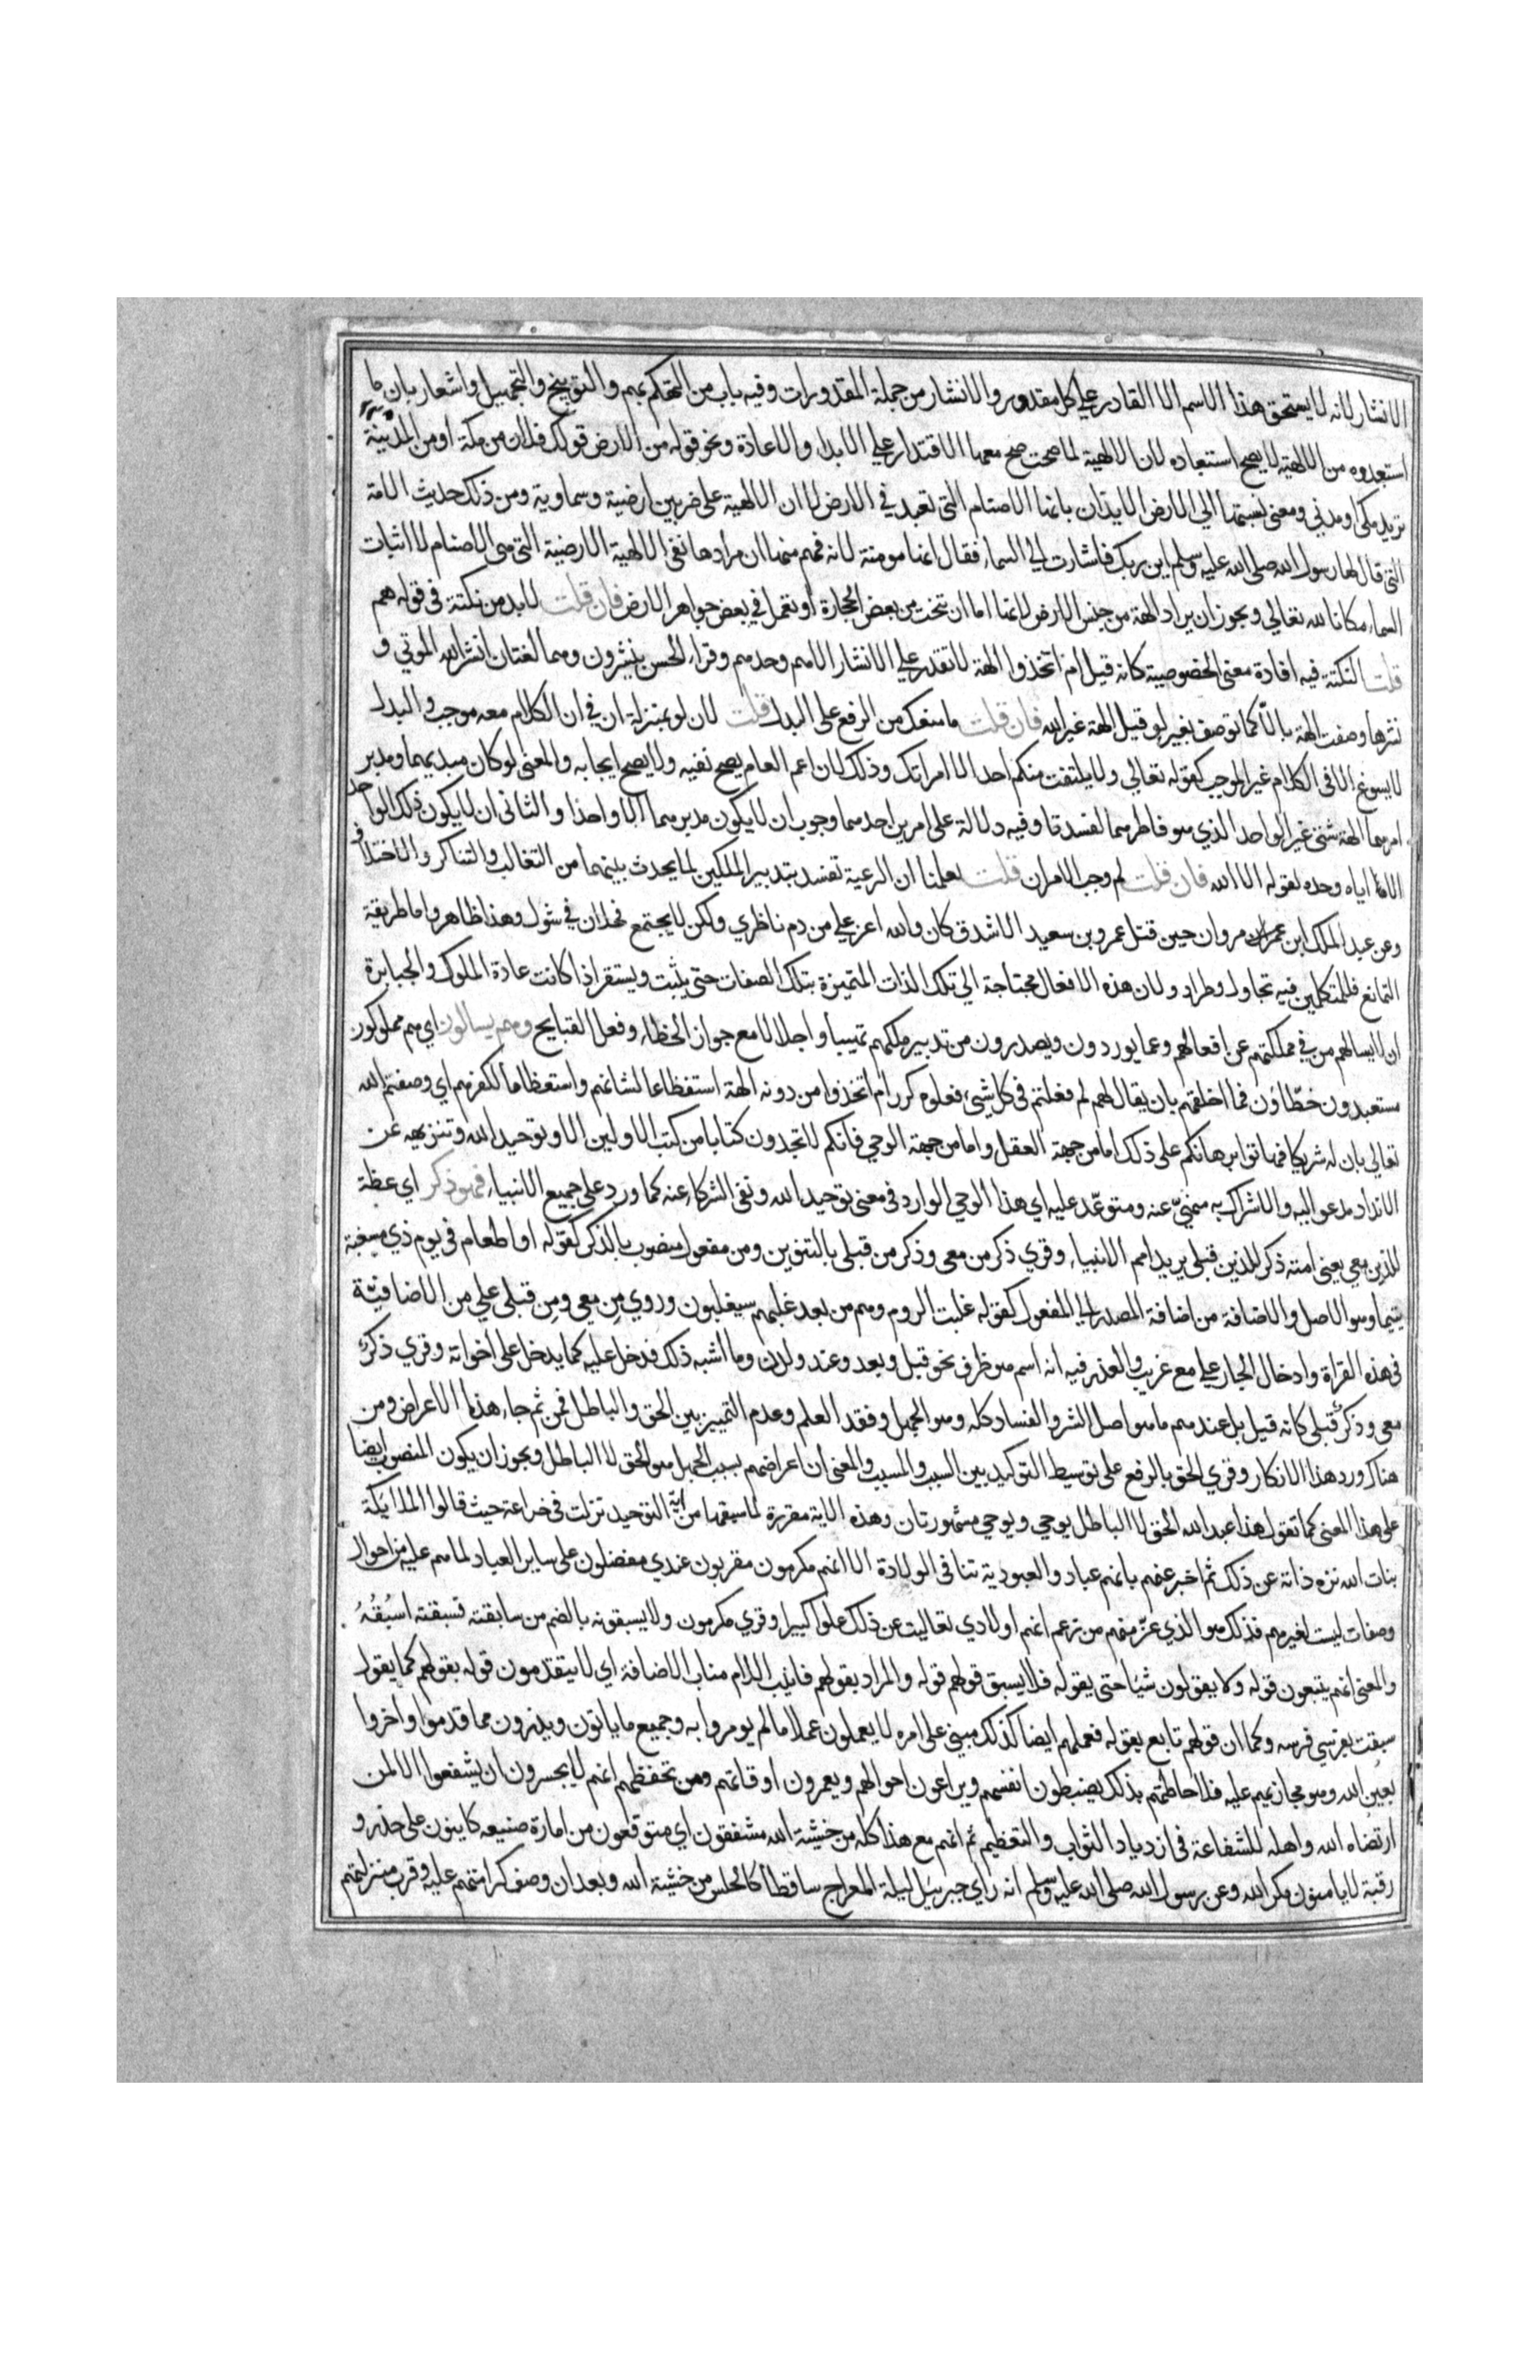 الانشار لانه لا يستحق هذا الاسم الا القادر علي كل مقدور والانشار من جملة المقدورات وفيه باب من التهكم بهم والتوبيخ والتجهيل واشعار بان ما
استبعدوه من الالهة لا يصح استبعاده لان الالهية لما صحت صح معها الاقتدار علي الابداء والاعادة ونحو قوله من الارض قولك فلان من مكة او من المدينة
تريد مكي ومدني ومعني نسبتها الي الارض الايذان بانها الاصنام التي تعبد في الارض لان الالهية على ضربين ارضية وسماوية ومن ذلك حديث الامة
التي قال لها رسول الله صلي الله عليه وسلم اين ربك فاشارت الي السماء فقال انها مومنة لانه فهم منها ان مرادها نفي الالهية الارضية التي هي الاصنام لا اثبات
السماء مكانا لله تعالي ويجوز ان يراد الهة من جنس الارض لانها اما ان تنحت من بعض الحجارة او تعمل في بعض جواهر الارض فان قلت لا بد من نكتة في قوله هم
قلت النكتة فيه افادة معني الخصوصية كانه قيل ام اتخذوا الهة لا تقدر علي الانشار الا هم وحدهم وقراء الحسن ينشرون وهما لغتان انشر الله الموتي و
نشرها وصفت الهة بالا كما توصف بغير لو قيل الهة غير الله فان قلت ما منعك من الرفع على البدل قلت لان لو بمنزلة ان في ان الكلام معه موجب والبدل
لا يسوغ الا في الكلام غير الموجب كقوله تعالي ولا يلتفت منكم احد الا امراتك وذلك لان اعم العام يصح نفيه ولا يصح ايجابه والمعني لو كان مبديهما ومدبر
امرهما الهة شتى غير الواحد الذي هو فاطرهما لفسدتا وفيه دلالة على امرين احدهما وجوب ان لا يكون مدبرهما الا واحدا والثاني ان لا يكون ذلك الواحد
الا اياه وحده لقوله الا الله فان قلت لم وجب الامران قلت لعلمنا ان الرعية تفسد بتدبير الملكين لما يحدث بينهما من التغالب والتناكر والاختلاف
وعن عبد الملك ابن مروان حين قتل عمرو بن سعيد الاشدق كان والله اعز علي من دم ناظري ولكن لا يجتمع فحلان في شول وهذا ظاهر واما طريقة
التمانع فللمتكلمين فيه تجاول وطراد ولان هذه الافعال محتاجة الي تلك الذات المتميزة بتلك الصفات حتى يثبت ويستقر اذا كانت عادة الملوك والجبابرة
ان لا يسالهم من في مملكتهم عن افعالهم وعما يوردون ويصدرون من تدبير ملكهم تهيبا واجلالا مع جواز الخطاء وفعل القبايح وهم يسالون اي هم مملوكون
مستعبدون خطاؤن فما اخلقهم بان يقال لهم لم فعلتم في كل شيء فعلوه كرر ام اتخذوا من دونه الهة استفظاعا لشانهم واستعظاما لكفرهم اي وصفتم الله
تعالي بان له شريكا فهاتوا برهانكم على ذلك اما من جهة العقل واما من جهة الوحي فانكم لا تجدون كتابا من كتب الاولين الا وتوحيد الله وتنزيهه عن
الانداد مدعو اليه والاشراك به منهي عنه ومتوعد عليه اي هذا الوحي الوارد في معنى توحيد الله ونفي الشركاء عنه كما ورد علي جميع الانبياء فهو ذكر اي عظة
للذين معي يعني امته ذكر للذين قبلي يريد امم الانبياء وقري ذكر من معي وذكر من قبلي بالتنوين ومن مفعول منصوب بالذكر كقوله او اطعام في يوم ذي مسغبة
يتيما وهو الاصل والاضافة من اضافة المصدر الي المفعول كقوله غلبت الروم وهم من بعد غلبهم سيغلبون وروي من معي ومن قبلي علي من الاضافية
في هذه القراة وادخال الجار علي مع غريب والعذر فيه انه اسم هو ظرف نحو قبل وبعد وعند ولدن وما اشبه ذلك فدخل عليه كما يدخل على اخواته وقري ذكر
معي وذكر قبلي كانه قيل بل عندهم ما هو اصل الشر والفساد كله وهو الجهل وفقد العلم وعدم التمييز بين الحق والباطل فمن ثم جاء هذا الاعراض ومن
هناك ورد هذا الانكار وقري الحق بالرفع على توسيط التوكيد بين السبب والمسبب والمعني ان اعراضهم بسبب الجهل هو الحق لا الباطل ويجوز ان يكون المنصوب ايضا
على هذا المعني كما تقول هذا عبد الله الحق لا الباطل يوحي ويوحي مشهورتان وهذه الاية مقررة لما سبقها من اية التوحيد نزلت في خزاعة حيث قالوا الملايكة
بنات الله نزه ذاته عن ذلك ثم اخبر عنهم بانهم عباد والعبودية تنافي الولادة الا انهم مكرمون مقربون عندي مفضلون على ساير العباد لما هم عليه من احوال
وصفات ليست لغيرهم فذلك هو الذي غر منهم من زعم انهم اولادي تعاليت عن ذلك علوا كبيرا وقري مكرمون ولا يسبقونه بالضم من سابقته فسبقته اسبقه
والمعني انهم يتبعون قوله ولا يقولون شيا حتى يقوله فلا يسبق قولهم قوله والمراد بقولهم فانيب اللام مناب الاضافة اي لا يتقدمون قوله بقولهم كما يقول
سبقت بفرسي فرسه وكما ان قولهم تابع بقوله فعملهم ايضا كذلك مبني على امره لا يعملون عملا ما لم يومروا به وجميع ما ياتون ويذرون مما قدموا واخروا
بعين الله وهو مجازيهم عليه فلاحاطتهم بذلك يضبطون انفسهم ويراعون احوالهم ويعمرون اوقاتهم ومن تحفظهم انهم لا يجسرون ان يشفعوا الا لمن
ارتضاه الله واهله للشفاعة في ازدياد الثواب والتعظيم ثم انهم مع هذا كله من خشية الله مشفقون اي متوقعون من امارة ضعيفه كاينون على حذر و
رقبة لا يامنون مكر الله وعن رسول الله صلي الله عليه وسلم انه راي جبرييل ليلة المعراج ساقطا كالحلس من خشية الله وبعد ان وصف كرامتهم عليه وقرب منزلتهم